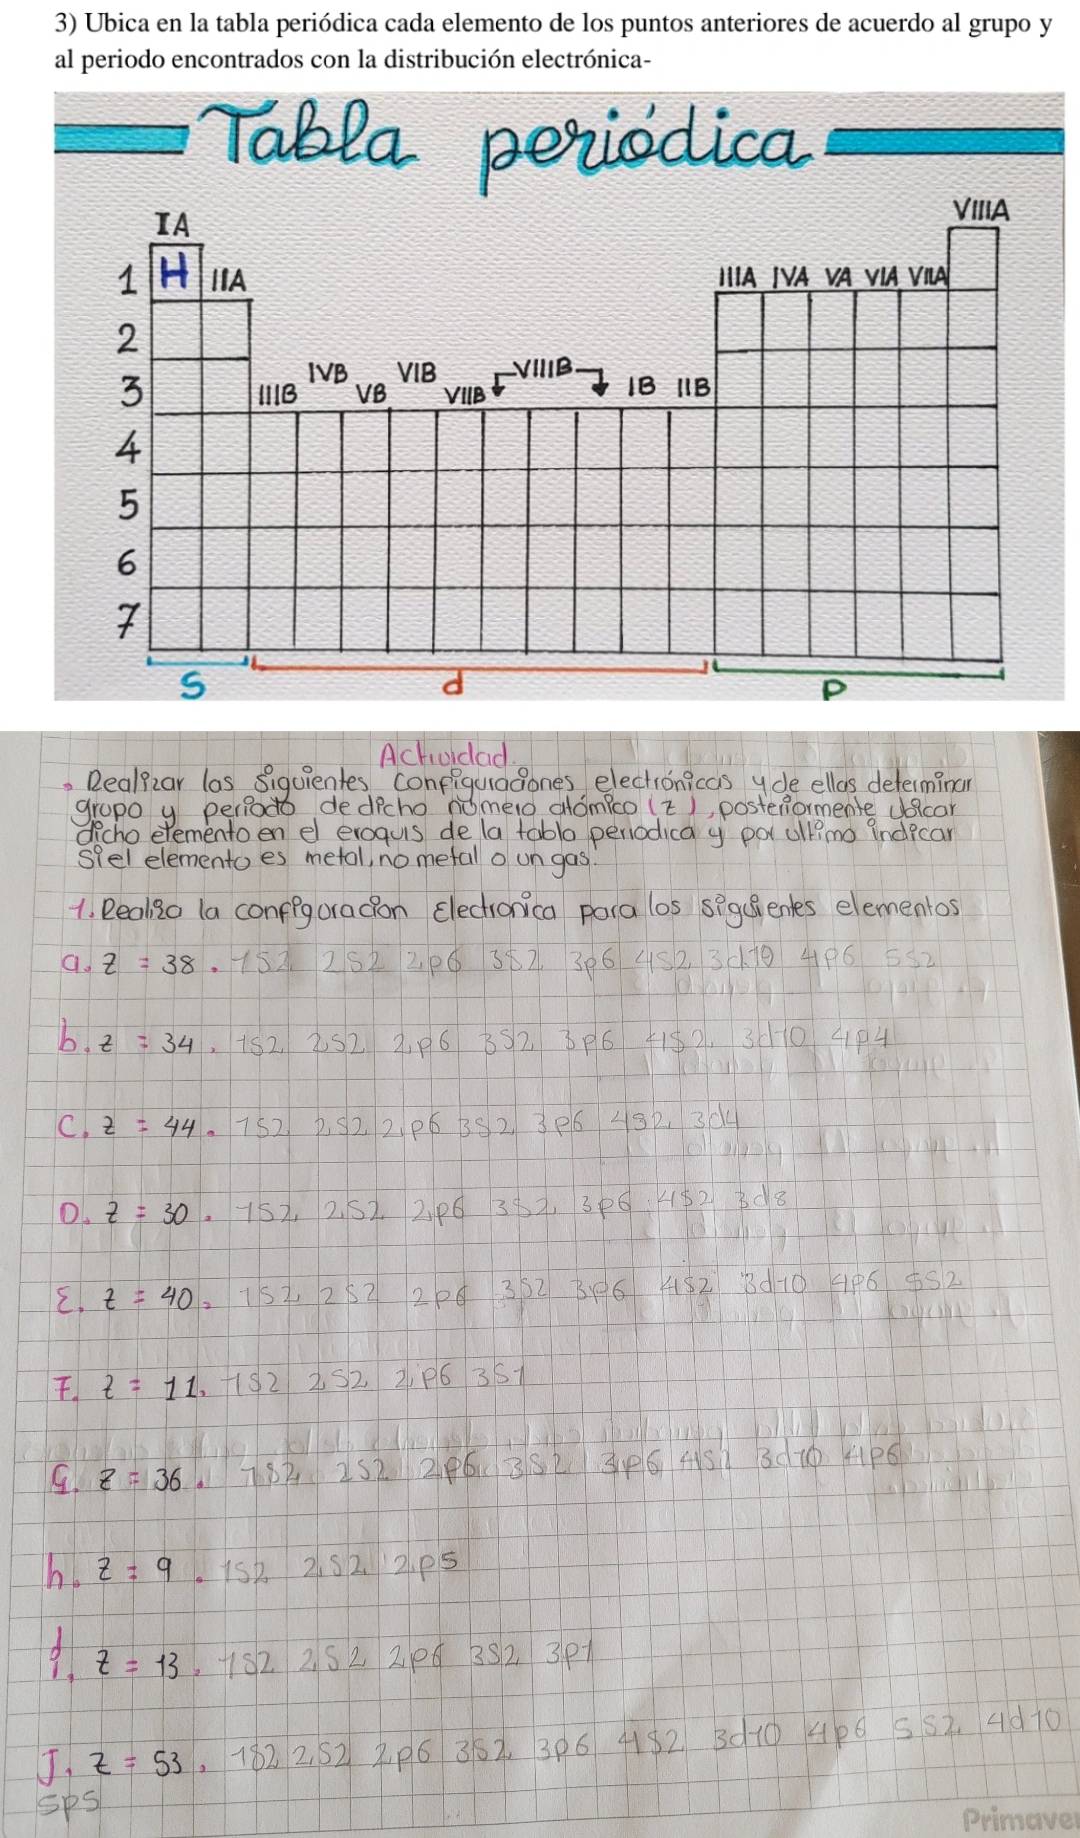 3) Ubica en la tabla periódica cada elemento de los puntos anteriores de acuerdo al grupo y
al periodo encontrados con la distribución electrónica-
Tabla periódica
IA VIIIA
1 H IIA IIIA IVA VA VIA VIIA
2
3 IIIB IVB VB VIB VIIB VIIIB IB IIB
4
5
6
7
S d P
Actividad
• Realizar las siguientes configuraciones electrónicas y de ellas determinar
grupo y periodo de dicho número atómico (z), posteriormente ubicar
dicho elemento en el croquis de la tabla periodica y por ultimo indicar
si el elemento es metal, no metal o un gas.
1. Realiza la configuracion Electronica para los siguientes elementos
a. z = 38. 1s2 2s2 2p6 3s2 3p6 4s2 3d10 4p6 5s2
b. z = 34. 1s2 2s2 2p6 3s2 3p6 4s2 3d10 4p4
C. z = 44. 1s2 2s2 2p6 3s2 3p6 4s2 3d4
D. z = 30. 1s2 2s2 2p6 3s2 3p6 4s2 3d8
E. z = 40. 1s2 2s2 2p6 3s2 3p6 4s2 3d10 4p6 5s2
F. z = 11. 1s2 2s2 2p6 3s1
G. z = 36. 1s2 2s2 2p6 3s2 3p6 4s2 3d10 4p6
h. z = 9. 1s2 2s2 2p5
i. z = 13. 1s2 2s2 2p6 3s2 3p1
J. z = 53. 1s2 2s2 2p6 3s2 3p6 4s2 3d10 4p6 5s2 4d10
5p5